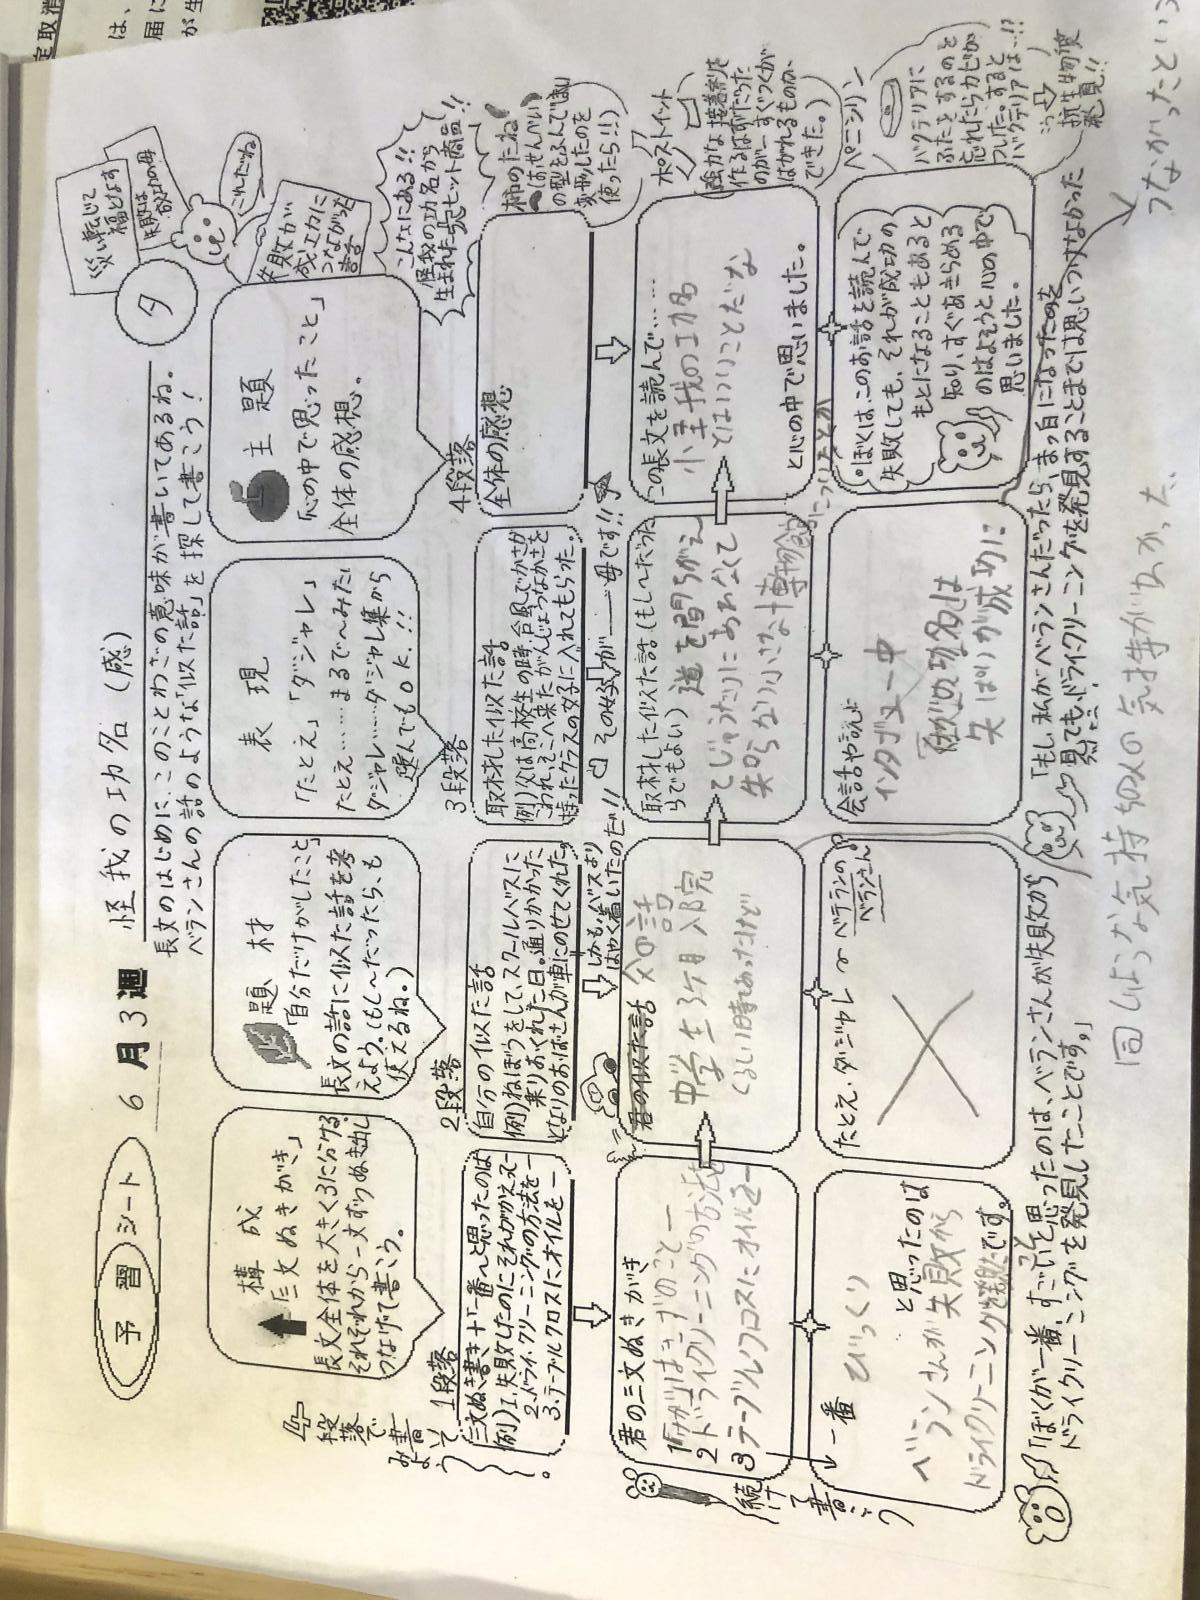 予習シート 6月3週 怪我の功名(感) タ
長文のはじめに、このことわざの意味が書いてあるね。
ベランさんの話のような「似た話」を探して書こう!
災い転じて福となす
失敗は成功の母
失敗が成功につながった話
4段落で書いてみよう。
構成
三文ぬきがき」
長文全体を大きく3に分ける。
それぞれから一文ずつぬき出し
つなげて書こう。
題材
「自分だけがしたこと」
長文の話に似た話を考
えよう。(もし〜だったら、も
使えるね。)
表現
「たとえ」「ダジャレ」
たとえ……まるで〜みたい
ダジャレ……ダジャレ集から
選んでもOK.!!
主題
「心の中で思ったこと」
全体の感想。
こんなにある!!
怪我の功名から
生まれた
1段落
三文ぬき書き+一番〜と思ったのは
例)1.失敗したのにそれがかえって―
2.ドライ・クリーニングの方法を―
3.テーブルクロスにオイルを―
2段落
自分の似た話
例)ねぼうをして、スクールバスに
乗りおくれた日。通りかかった
となりのおばさんが車にのせてくれた。
しかも、バスより
はやく着いたのだ!!
3段落
取材した似た話
例)父は高校生の時、台風でかさが
こわれ、そこへ来たがんじょうなかさを
持ったクラスの女子に入れてもらった。
その女子が――母です!!
4段落
全体の感想
柿のたね
(はせんべい
の型をふんでしまい
変形したのを
使ったら!!)
ポストイット
強力な接着剤を
作るはずだった
のが― すぐつくが
はがれるものが、
できた。)
ペニシリン
バクテリアに
ふたをするのを
忘れたらカビが
ついた。すると
バクテリアは…!?
抗生物質
発見!!
君の三文ぬきがき
1
2 ドライクリーニングの方法を
3 テーブルクロスにオイルを―
君の似た話 父の話
中学生3ヶ月入院
取材した似た話(もし〜だった
らでもよい)
道を間ちがえ
この長文を読んで……
怪我の功名
とはいうことだな
と心の中で思いました。
続けて書こう
一番 びっくり
と思ったのは
ベランさんが失敗から
ドライクリーニングを
です。
たとえ・ダジャレ 〜ベテランの
ベランさん
会話や
インタビュー中
怪我の功名は
失ぱいが成功に
「ぼくは、このお話を読んで
失敗しても、それが成功の
もとになることもあると
知り、すぐあきらめる
のはよそうと心の中で
思いました。
「ぼくが一番、すごいと思ったのは、ベランさんが失敗から
ドライクリーニングを発見したことです。」
「もし、私がベランさんだったら、まっ白になったのを
見てもドライクリーニングを発見することまでは思いつけなかった
同じような気持ちの人の気持ちがわかった、
つながったという